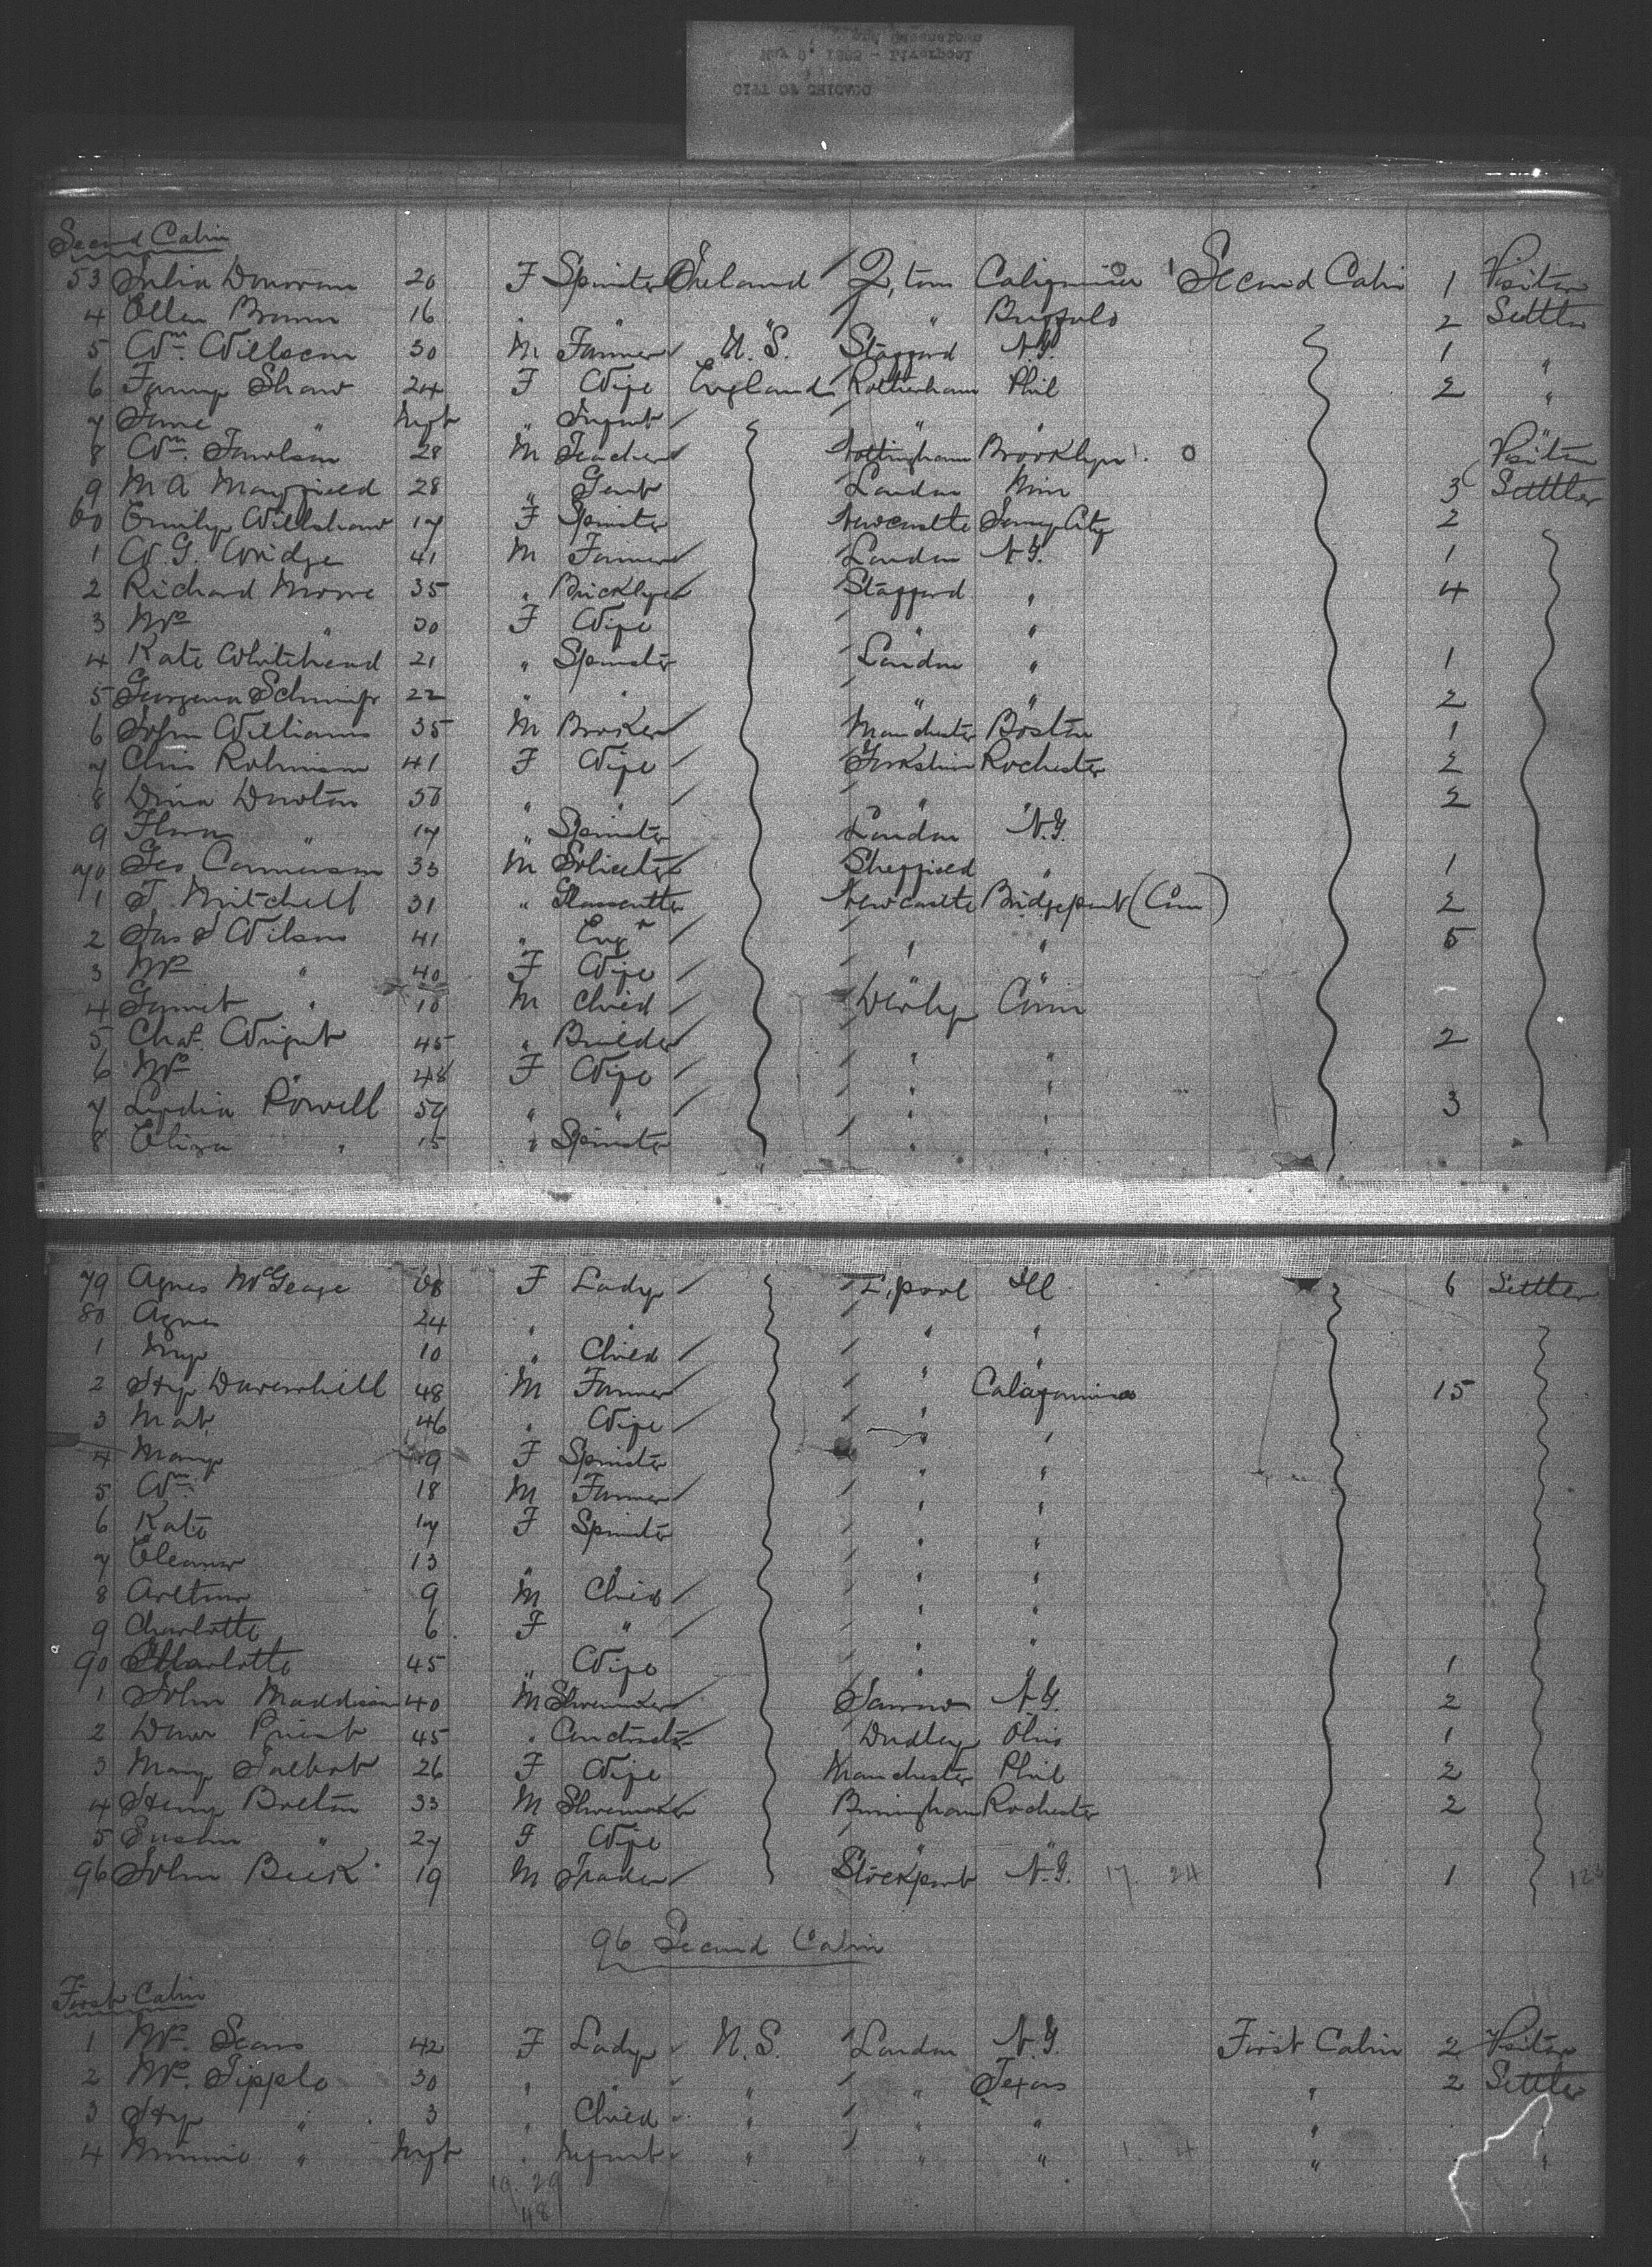 CITY OF CHICAGO
Second Cabin
53 Julia Donovan 20 F Spinster Ireland Q,town Second Cabin 1 Visitor
4 Ellen Brown 16 " " " " Buffalo 2 Settler
5 Wm. Willson 30 M Farmer U.S. Stafford N.Y. 1 "
6 Fanny Shaw 24 F Wife England Rotherham Phil 2 "
7 Jane " Inft " Infant " "
8 Wm. 28 M Teacher Nottingham Brooklyn Visitor
9 M A Mayfield 28 " Gent London Min 3 Settler
60 Emily Willshaw 17 F Spinster Newcastle Jersey City 2
1 W. G. Wridge 41 M Farmer London N.Y. 1
2 Richard Moore 35 " Bricklyer Stafford " 4
3 Mrs " 30 F Wife " "
4 Kate Whitehead 21 " Spinster London " 1
5 22 " " " " 2
6 John Williams 35 M Broker Manchester Boston 1
7 Robinson 41 F Wife Yorkshire Rochester 2
8 50 " " " " 2
9 Flora " 17 " Spinster London N.Y.
70 Geo 33 M Solicitor Sheffield " 1
1 T. Mitchell 31 " Glasscutter Newcastle Bridgeport (Con) 2
2 Jas Wilson 41 " Engr " " 5
3 Mrs " 40 F Wife " "
4 " 10 M Child Derby
5 Chas. Wright 45 " Builder " " 2
6 Mrs " 48 F Wife " "
7 Lydia Rowell 59 " " " " 3
8 Eliza " 15 " Spinster " "
79 Agnes F Lady L,pool Ill 6 Settler
80 Agnes 24 " " " "
1 10 " Child " "
2 Hy 48 M Farmer " 15
3 Mat 46 " Wife " "
4 Mary 19 F Spinster " "
5 Wm. 18 M Farmer " "
6 Kate 17 F Spinster " "
7 Eleanor 13 " " " "
8 Arthur 9 M Child " "
9 Charlotte 6 F " " "
90 Charlotte 45 " Wife " " 1
1 John Maddison 40 M Shoemaker N.Y. 2
2 45 " Dudley Ohio 1
3 Mary Talbot 26 F Wife Manchester Phil 2
4 Henry 33 M Shoemaker Birmingham Rochester 2
5 Susan " 27 F Wife " "
96 John Beek 19 M Stockport N.Y. 17. 24 1
96 Second Cabin
First Cabin
1 Mrs. Sears 42 F Lady U.S. London N.Y. First Cabin 2 Visitor
2 Mrs. Tipple 30 " " " " Texas " 2 Settler
3 Hy " 3 " Child " " " "
4 Minnie " Inft " Infant " " " " "